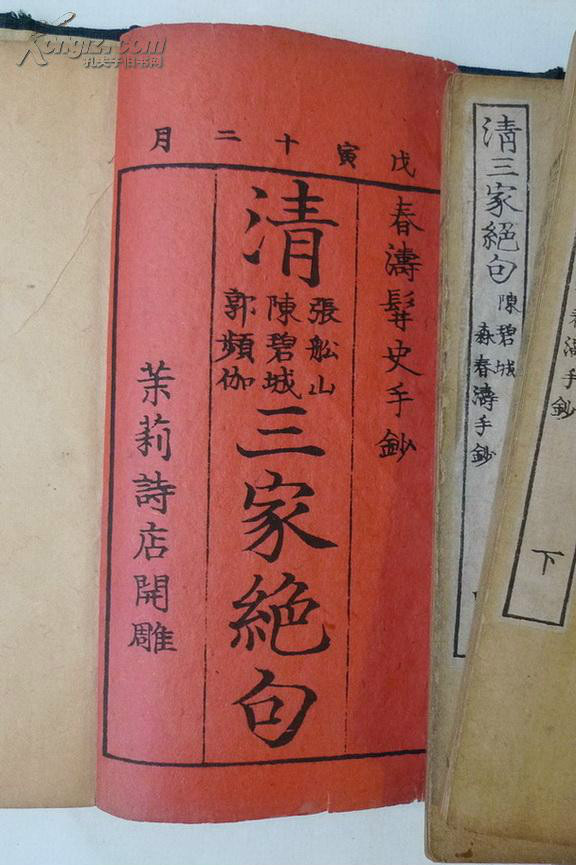 Kongfz.com
孔夫子旧书网
戊寅十二月
春濤髯史手鈔
清
張船山
陳碧城
郭頻伽
三家絕句
茉莉詩店開雕
清三家絕句
陳碧城
森春濤手鈔
濤手鈔
下